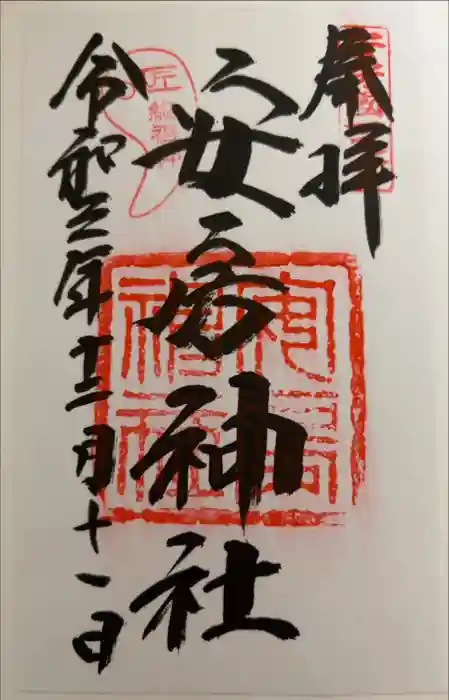 奉拝
安房神社
令和三年十二月十一日
安房
神社